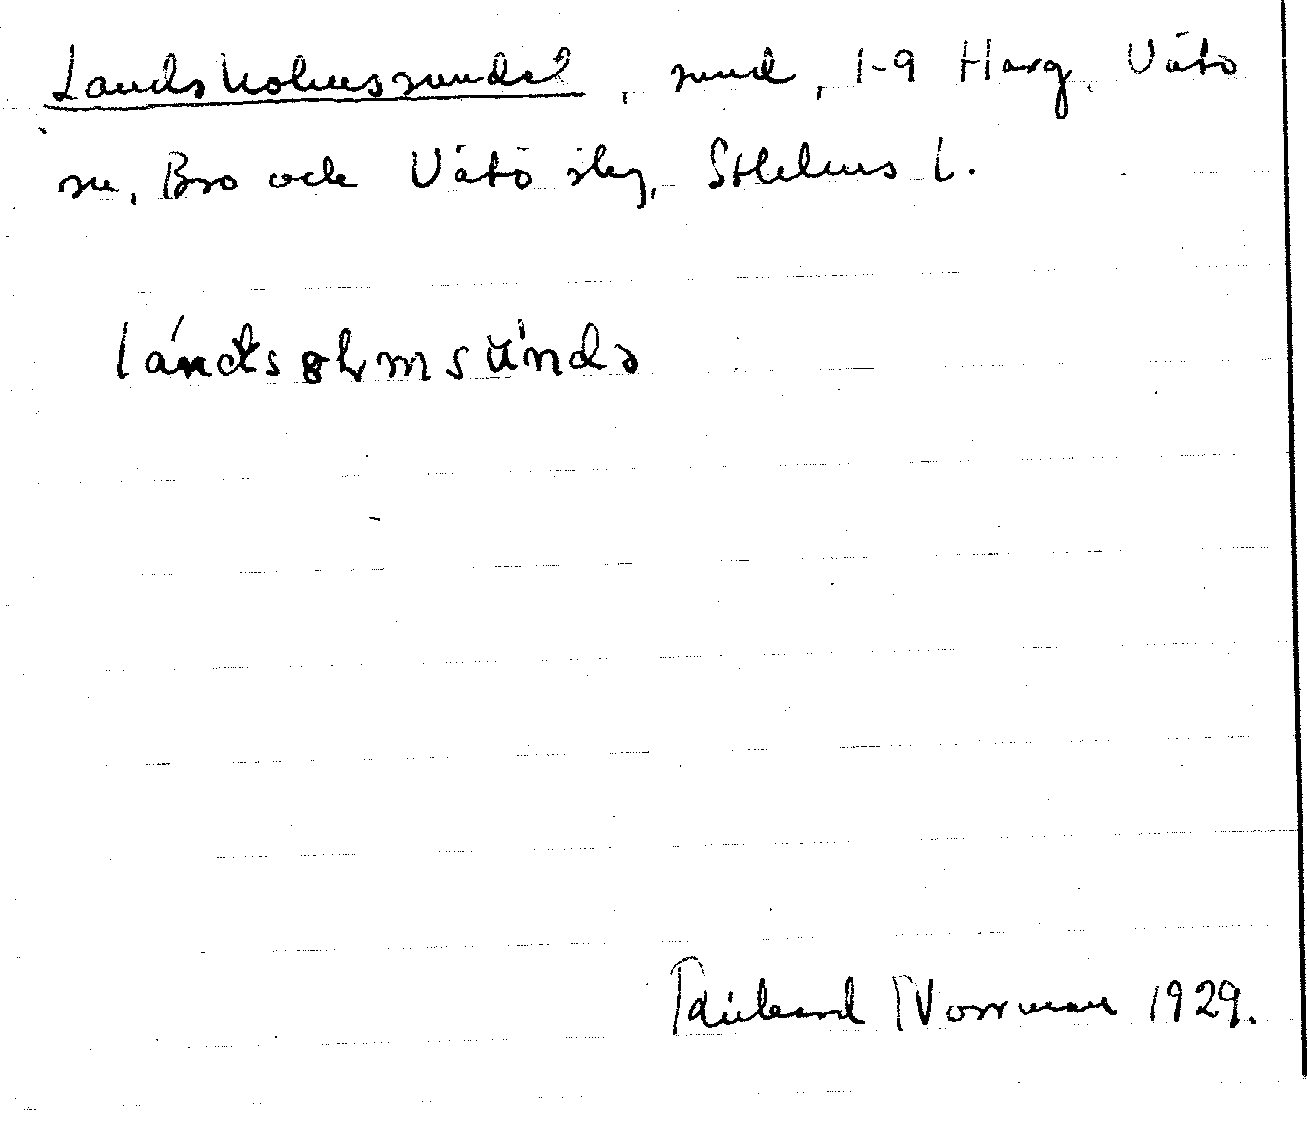 Landsholmssundet, sund, 1-9 Harg, Vätö
sn, Bro och Vätö slg, Sthlms l.
lándsɵlmsúndə
Norrman 1929.